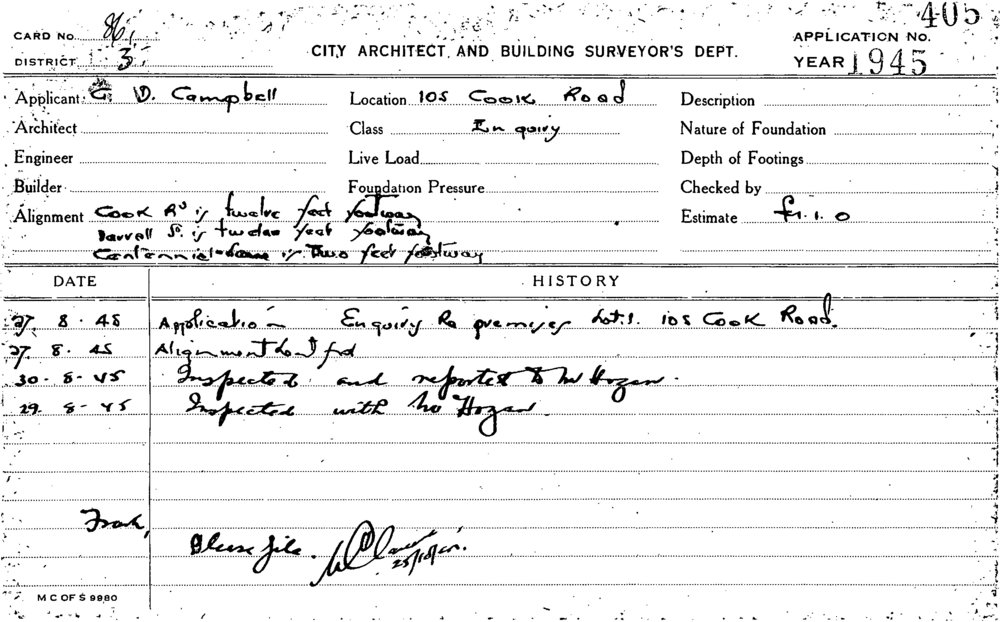 405
CARD No. 86
APPLICATION No.
DISTRICT 3
CITY ARCHITECT AND BUILDING SURVEYOR'S DEPT.
YEAR 1945
Applicant G. D. Campbell Location 105 Cook Road Description
Architect Class Enquiry Nature of Foundation
Engineer Live Load Depth of Footings
Builder Foundation Pressure Checked by
Alignment Cook Rd is twelve feet footway Estimate £1.1.0
Darvall St. is twelve feet footway
Centennial Lane is Two feet footway
DATE HISTORY
27. 8. 45 Application Enquiry Re premises Lot 1. 105 Cook Road.
27. 8. 45 Alignment
30-8-45 Inspected and reported to Mr Hogan.
29. 8-45 Inspected with Mr Hogan.
Frank,
Please file. 25/10/45.
M C OF S 9980